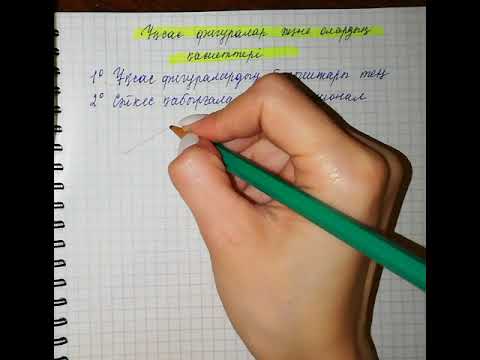 Ұқсас фигуралар және олардың
қасиеттері
1° Ұқсас фигуралардың бұрыштары тең
2° Сәйкес қабырғала